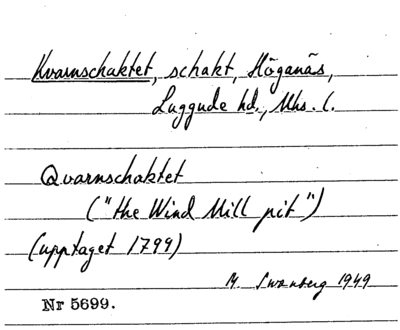 Kvarnschaktet, schakt, Höganäs,
Luggude hd., Mhs. l.
Qvarnschaktet
("the Wind Mill pit")
(upptaget 1799)
M. Swanberg 1949
Nr 5699.